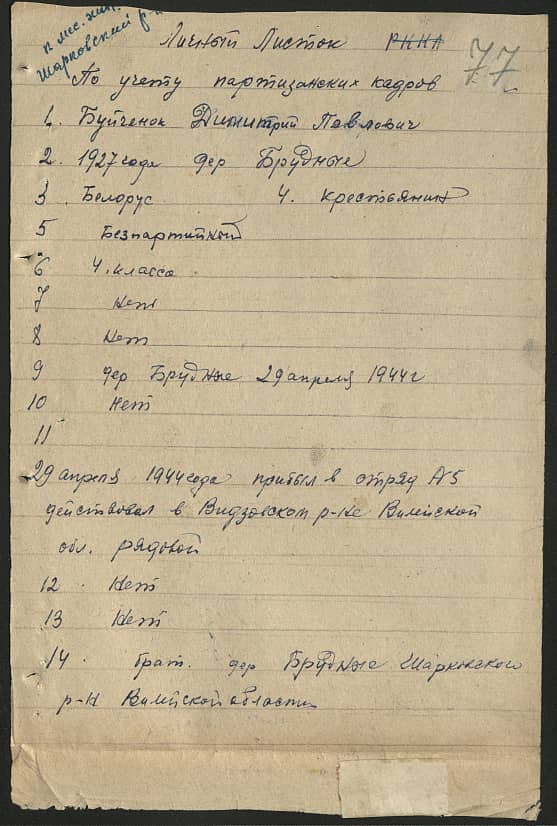 п мес. жит.
Шарковский р-н
Личный Листок РККА 77
По учету партизанских кадров
1. Буйченок Димитрий Павлович
2. 1927 года дер Брудные
3. Белорус 4. крестьянин
5 Безпартийный
6 4. класса
7 Нет
8 Нет
9 дер Брудные 29 апреля 1944 г
10 Нет
11
29 апреля 1944 года прибыл в отряд №5
действовал в Видзовском р-не Вилейской
обл. рядовой
12. Нет
13 Нет
14. брат. дер Брудные Шарковского
р-н Вилейской области